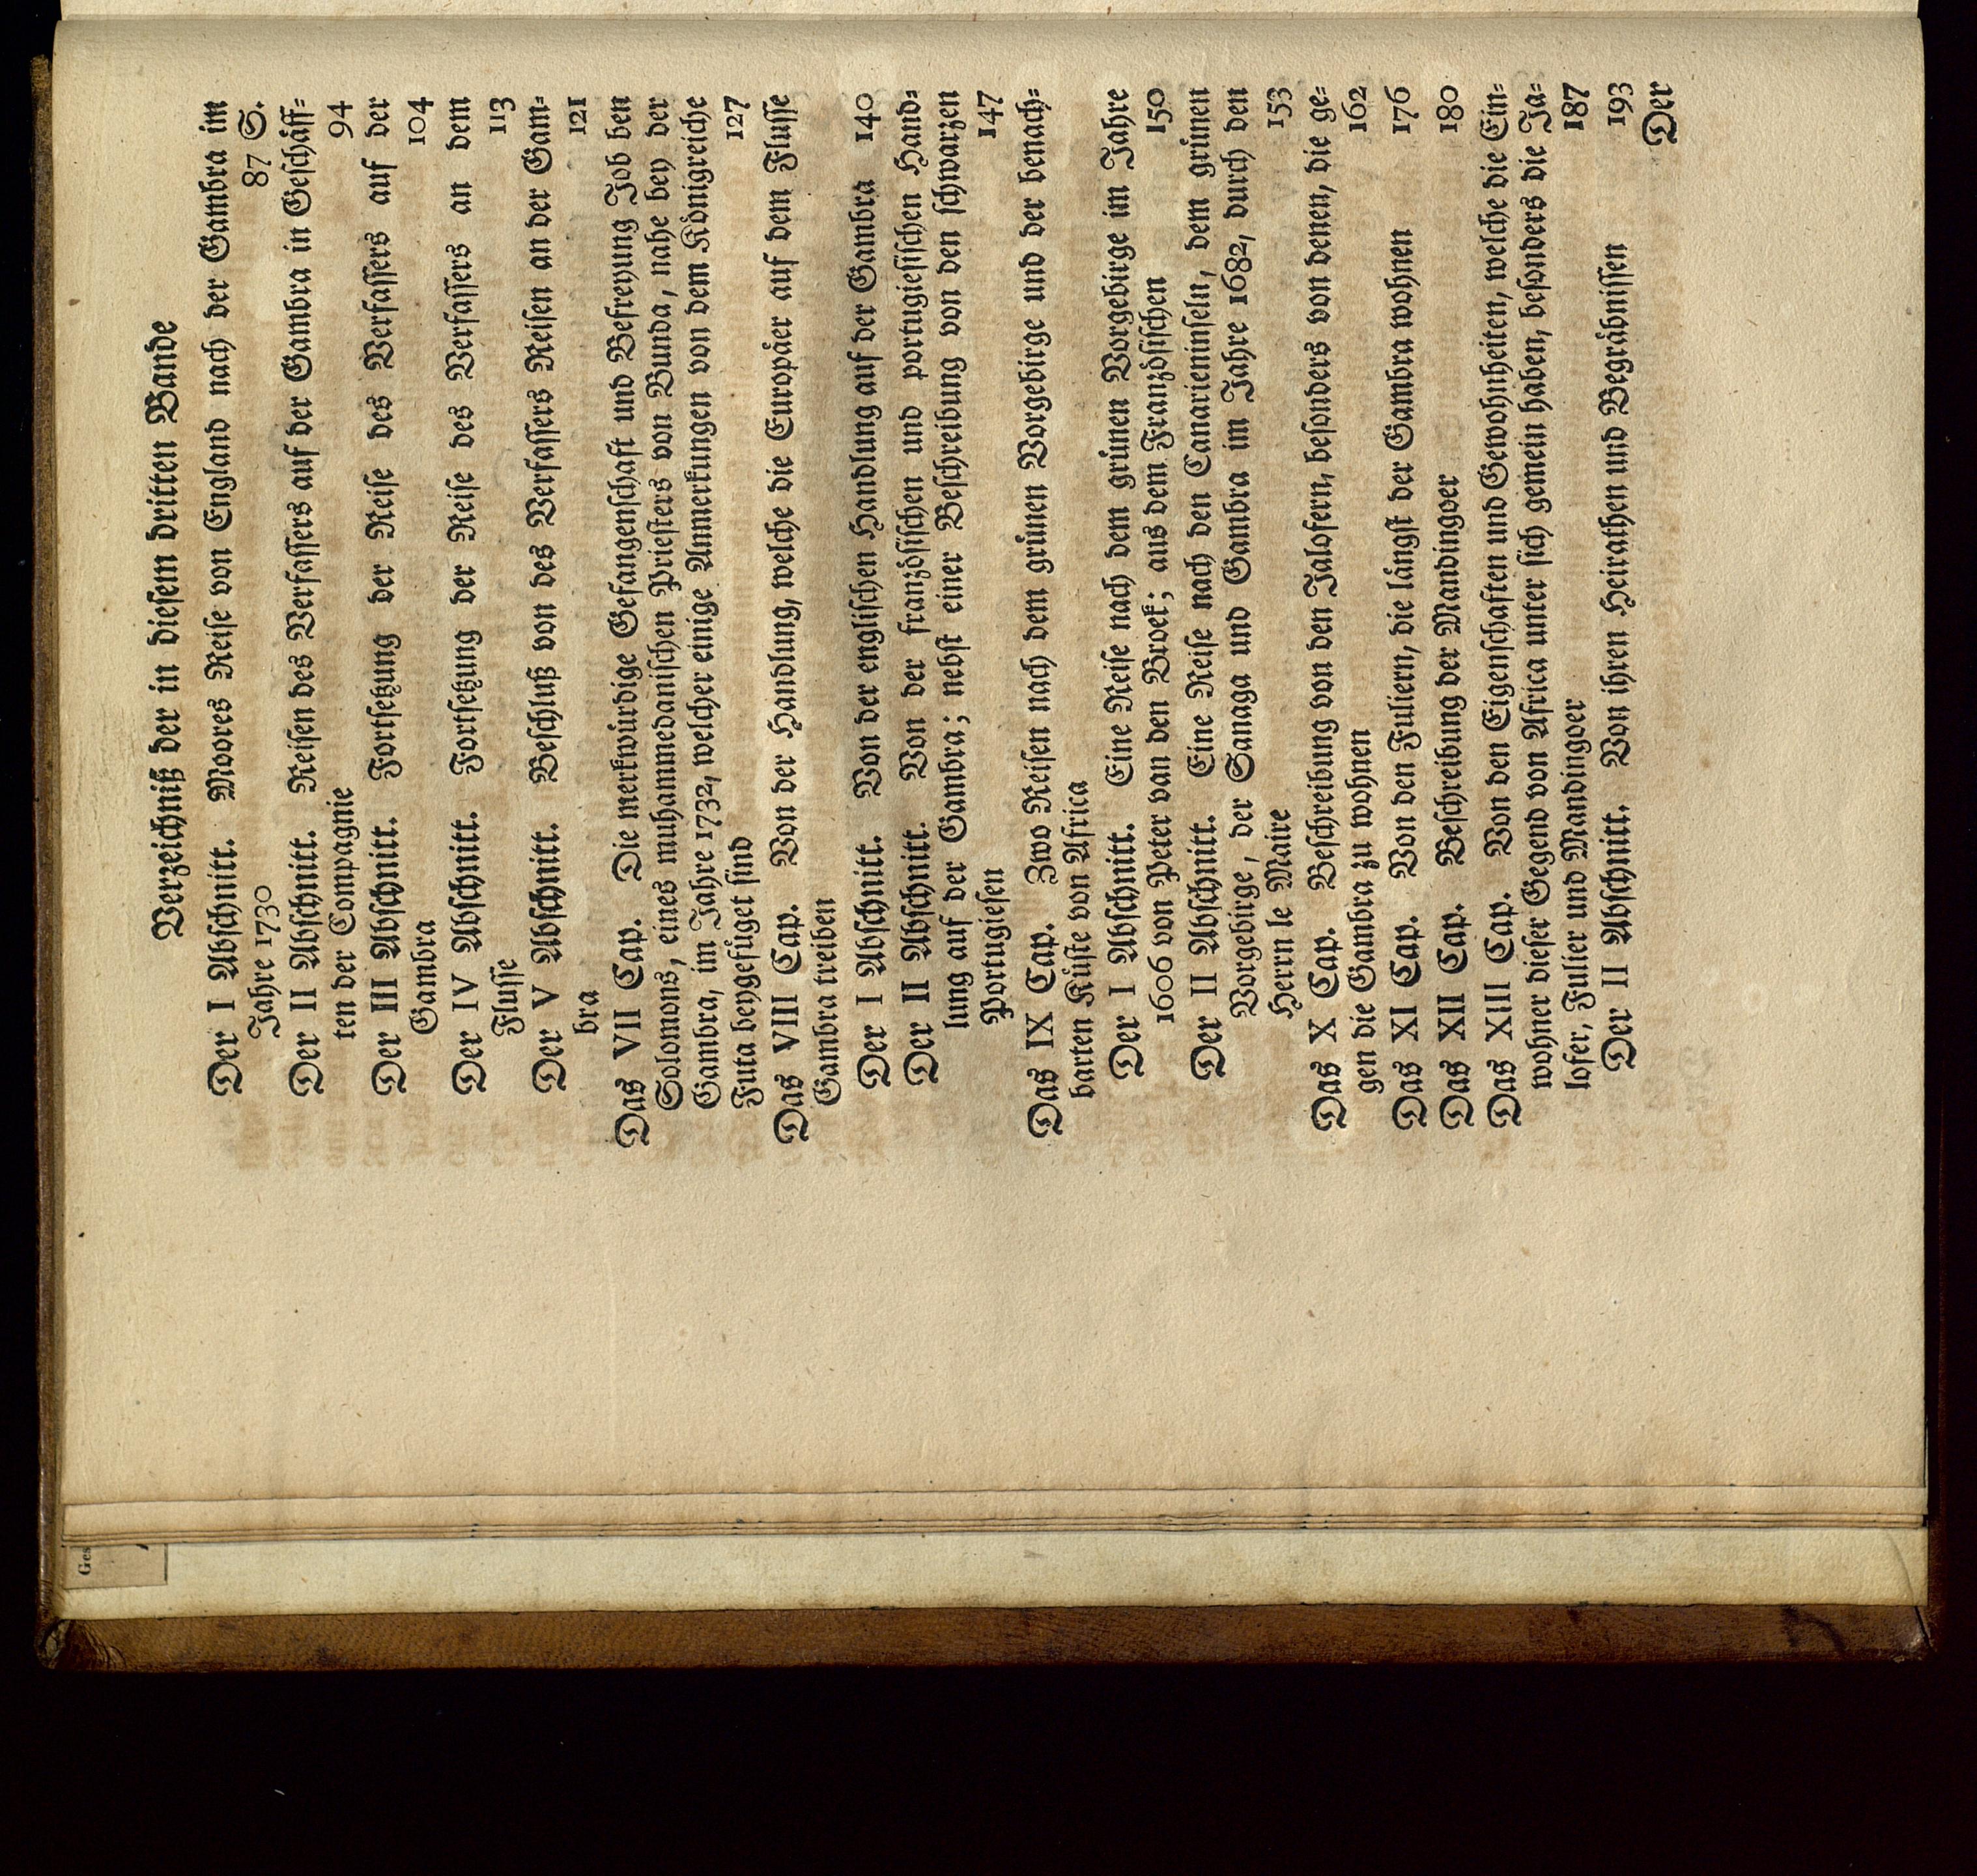 Verzeichniß der in diesem dritten Bande
Der I Abschnitt. Moores Reise von England nach der Gambra im
Jahre 1730 87 S.
Der II Abschnitt. Reisen des Verfassers auf der Gambra in Geschäff-
ten der Compagnie 94
Der III Abschnitt. Fortsetzung der Reise des Verfassers auf der
Gambra 104
Der IV Abschnitt. Fortsetzung der Reise des Verfassers an dem
Flusse 113
Der V Abschnitt. Beschluß von des Verfassers Reisen an der Gam-
bra 121
Das VII Cap. Die merkwürdige Gefangenschaft und Befreyung Job ben
Solomons, eines muhammedanischen Priesters von Bunda, nahe bey der
Gambra, im Jahre 1732, welcher einige Anmerkungen von dem Königreiche
Futa beygefüget sind 127
Das VIII Cap. Von der Handlung, welche die Europäer auf dem Flusse
Gambra treiben
Der I Abschnitt. Von der englischen Handlung auf der Gambra 140
Der II Abschnitt. Von der französischen und portugiesischen Hand-
lung auf der Gambra; nebst einer Beschreibung von den schwarzen
Portugiesen 147
Das IX Cap. Zwo Reisen nach dem grünen Vorgebirge und der benach-
barten Küste von Africa
Der I Abschnitt. Eine Reise nach dem grünen Vorgebirge im Jahre
1606 von Peter van den Broek; aus dem Französischen 150
Der II Abschnitt. Eine Reise nach den Canarieninseln, dem grünen
Vorgebirge, der Sanaga und Gambra im Jahre 1682, durch den
Herrn le Maire 153
Das X Cap. Beschreibung von den Jalofern, besonders von denen, die ge-
gen die Gambra zu wohnen 162
Das XI Cap. Von den Fuliern, die längst der Gambra wohnen 176
Das XII Cap. Beschreibung der Mandingoer 180
Das XIII Cap. Von den Eigenschaften und Gewohnheiten, welche die Ein-
wohner dieser Gegend von Africa unter sich gemein haben, besonders die Ja-
lofer, Fulier und Mandingoer 187
Der II Abschnitt. Von ihren Heirathen und Begräbnissen 193
Der
Ges